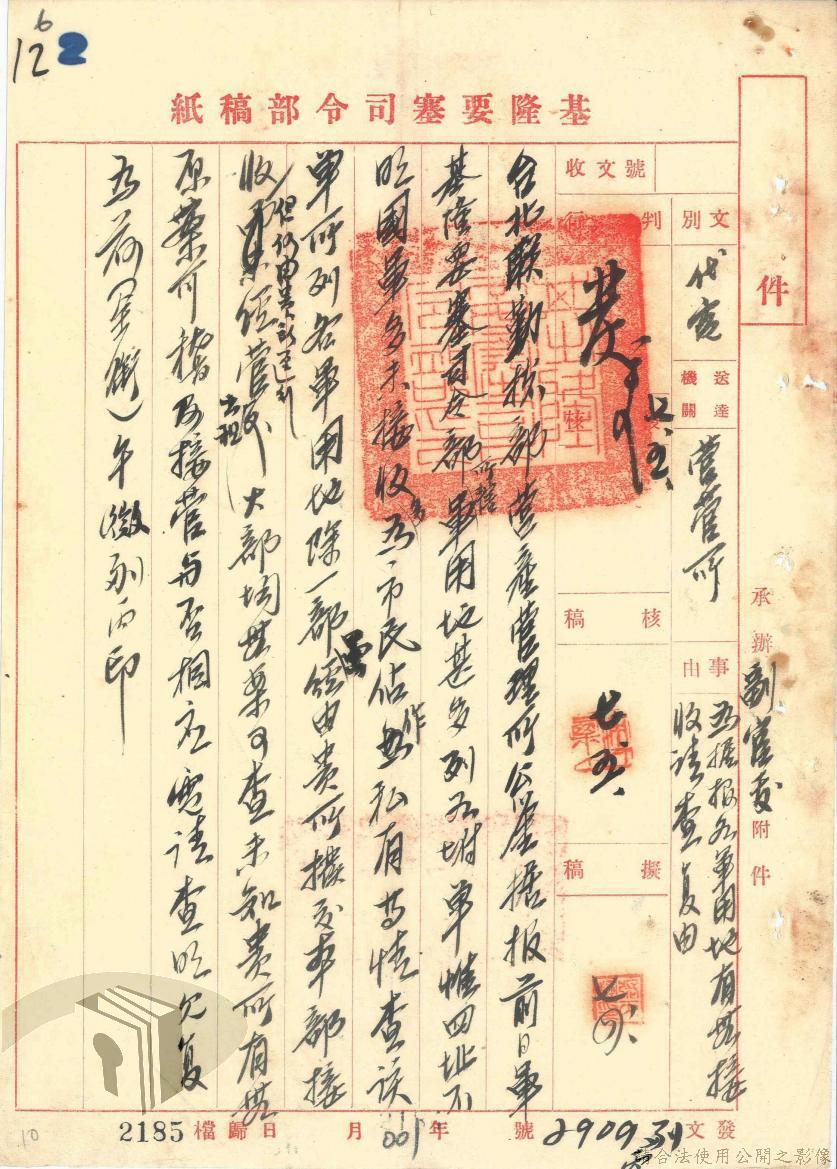 6
12 2
基隆要塞司令部稿紙
件
承辦 副官處 附件
文別 代電
送達機關 營管所
事由 為據報各軍用地有無接
收請查復由
收文 號
判行
核稿 七、五、
擬稿 七、四、
台北聯勤總部營產管理所公鑒據報前日軍
基隆要塞司令部所管軍用地甚多列如附單惟四址不
明國軍多未接收多為市民佔作私有等情查該
單所列各軍用地除一部經由貴所撥交本部接
收
大部均無案可查未知貴所有無
原案可稽及接管與否相應電請查明見復
為荷(全銜)午(微)副丙印
發文 副 2909 號 年 月 日歸檔 2185
001
10
請合法使用公開之影像